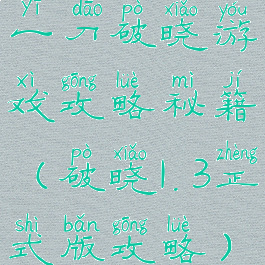 yī dāo pò xiǎo yóu
一刀破晓游
xì gōng lüè mì jí
戏攻略秘籍
pò xiǎo zhèng
(破晓1.3正
shì bǎn gōng lüè
式版攻略)